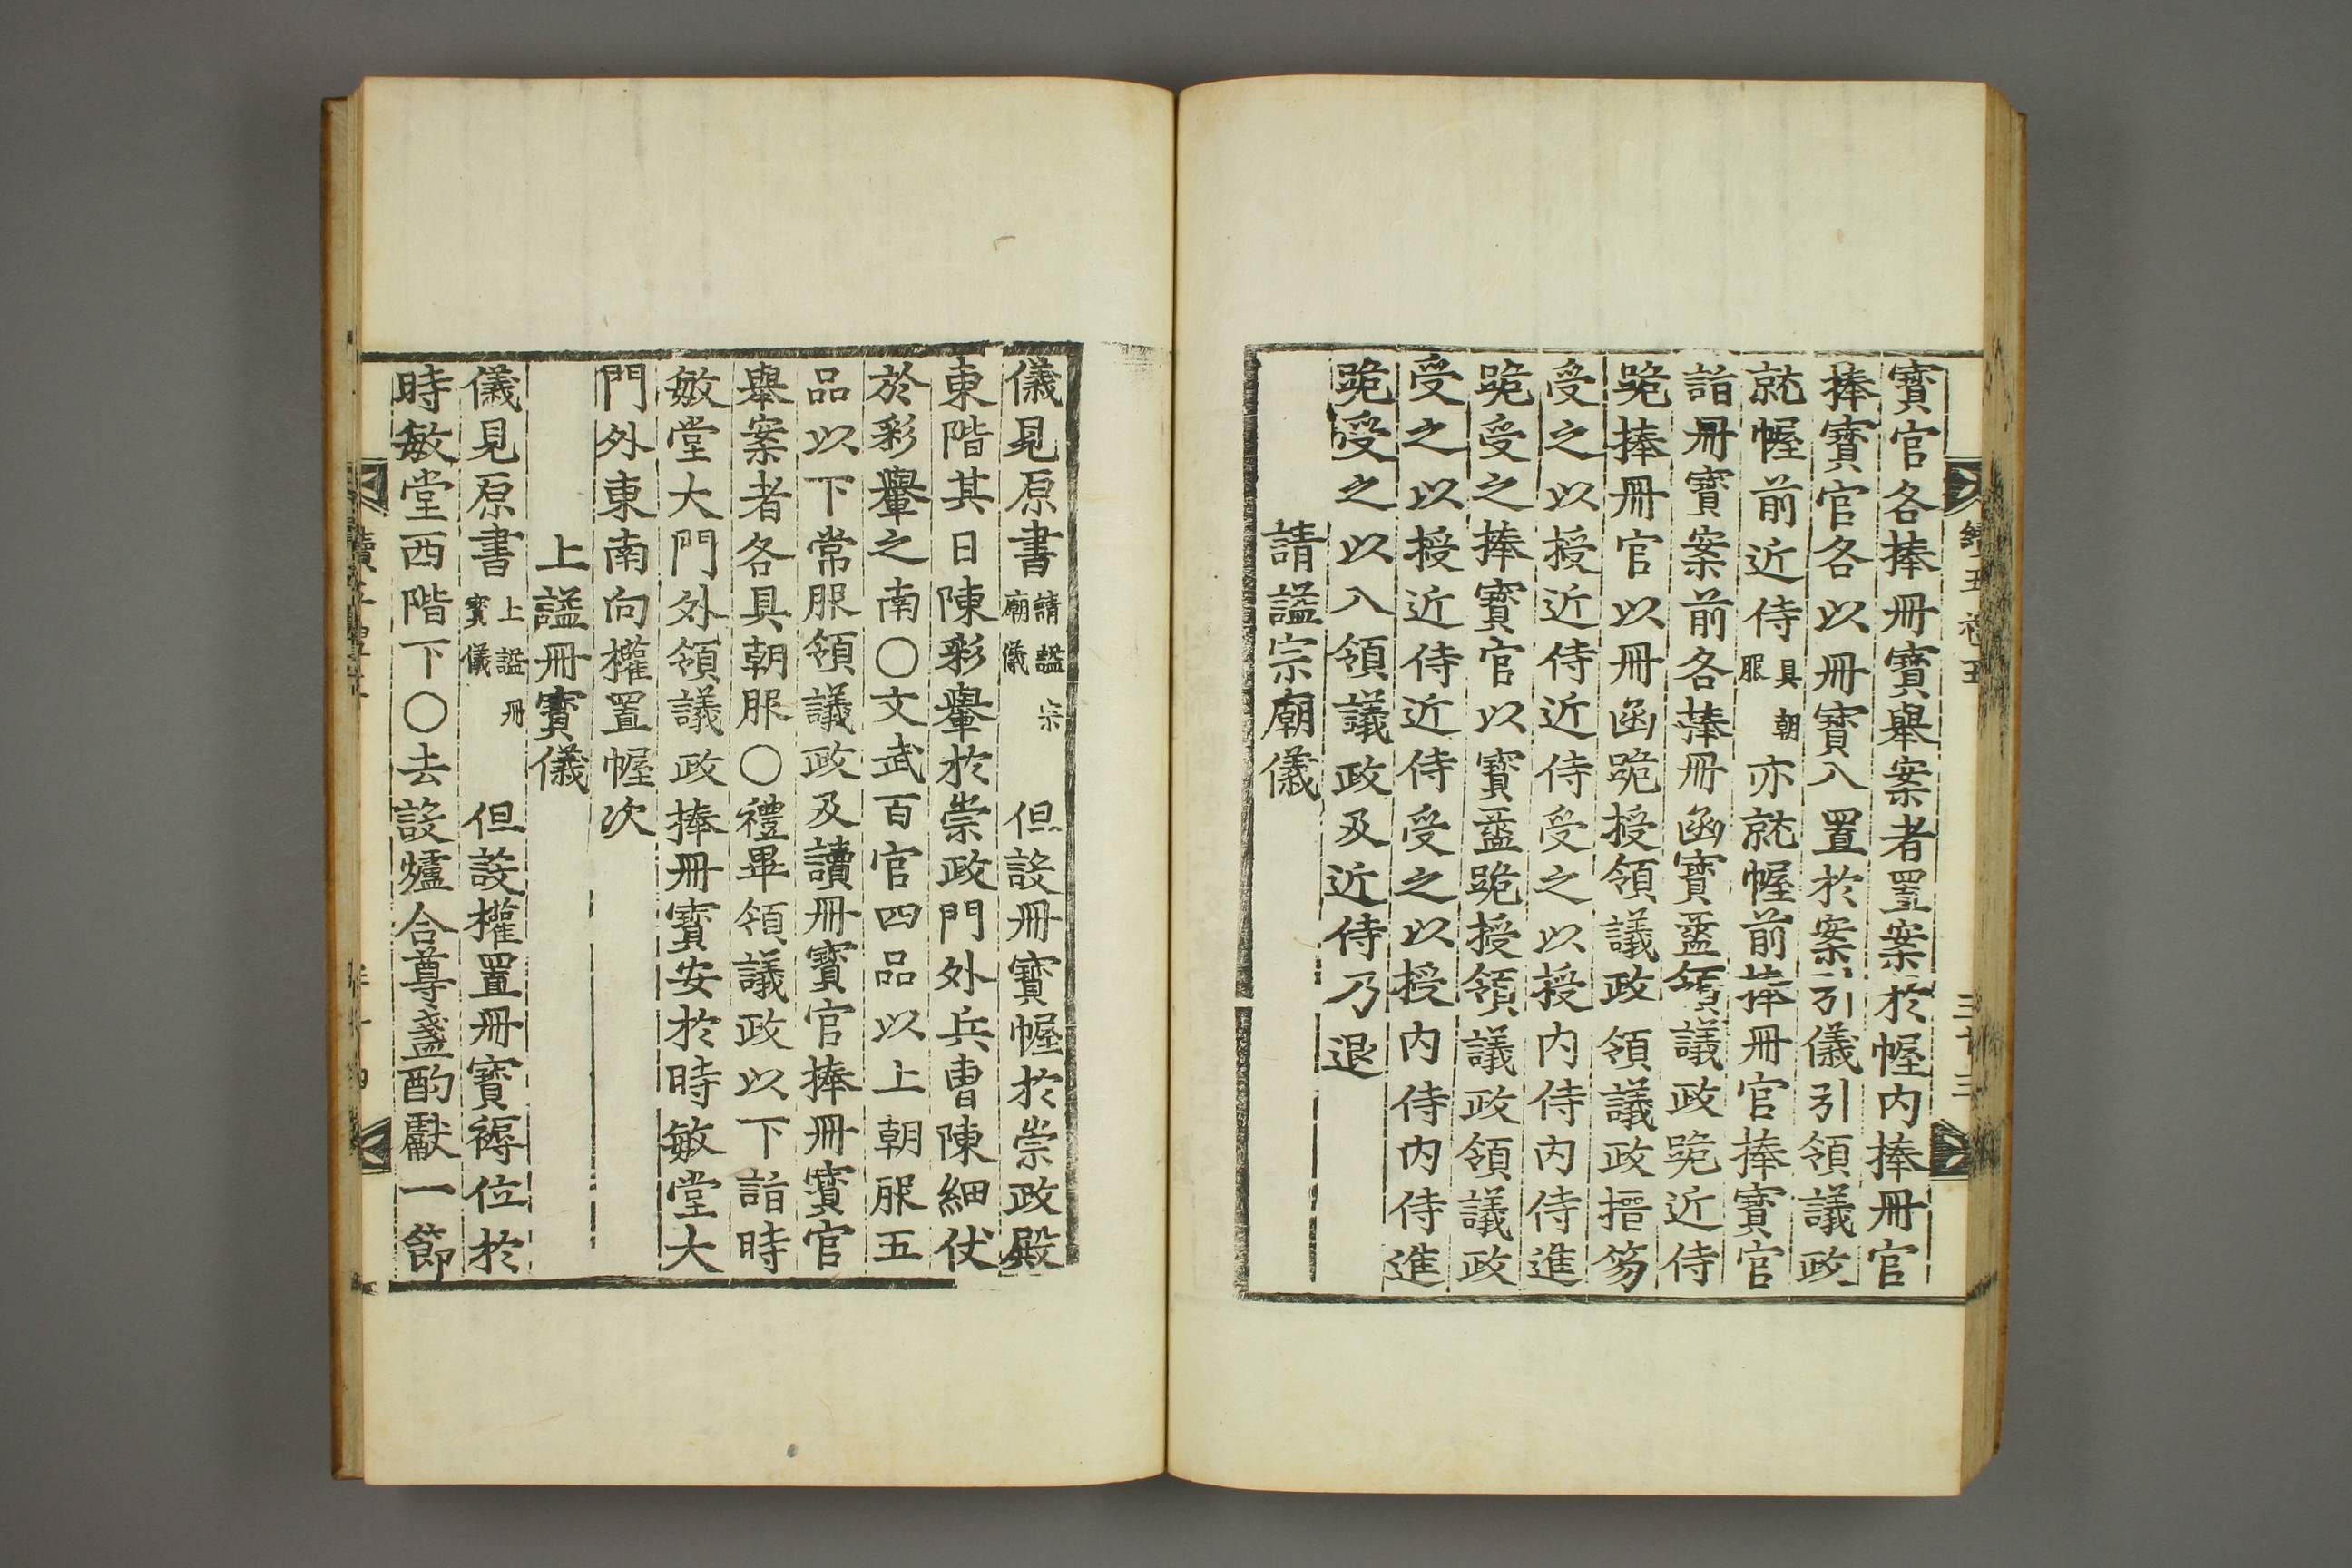 寶官各捧冊寶舉案者置案於幄內捧冊官
捧寶官各以冊寶入置於案引儀引領議政
就幄前近侍具朝服亦就幄前捧冊官捧寶官
詣冊寶案前各捧冊函寶盝領議政跪近侍
跪捧冊官以冊函跪授領議政領議政搢笏
受之以授近侍近侍受之以授內侍內侍進
跪受之捧寶官以寶盝跪授領議政領議政
受之以授近侍近侍受之以授內侍內侍進
跪受之以入領議政及近侍乃退
請謚宗廟儀
儀見原書請謚宗廟儀但設冊寶幄於崇政殿
東階其日陳彩轝於崇政門外兵曹陳細仗
於彩轝之南○文武百官四品以上朝服五
品以下常服領議政及讀冊寶官捧冊寶官
舉案者各具朝服○禮畢領議政以下詣時
敏堂大門外領議政捧冊寶安於時敏堂大
門外東南向權置幄次
上謚冊寶儀
儀見原書上謚冊寶儀但設權置冊寶褥位於
時敏堂西階下○去設爐合尊盞酌獻一節